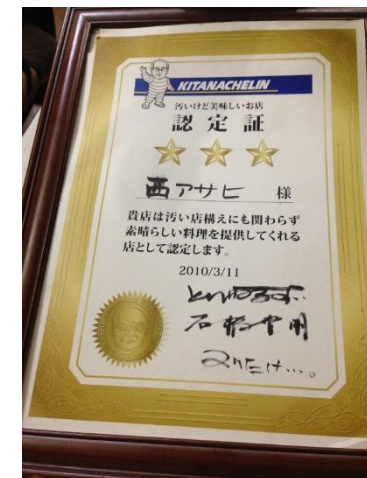 KITANACHELIN
汚いけど美味しいお店
認定証
西アサヒ 様
貴店は汚い店構えにも関わらず
素晴らしい料理を提供してくれる
店として認定します。
2010/3/11